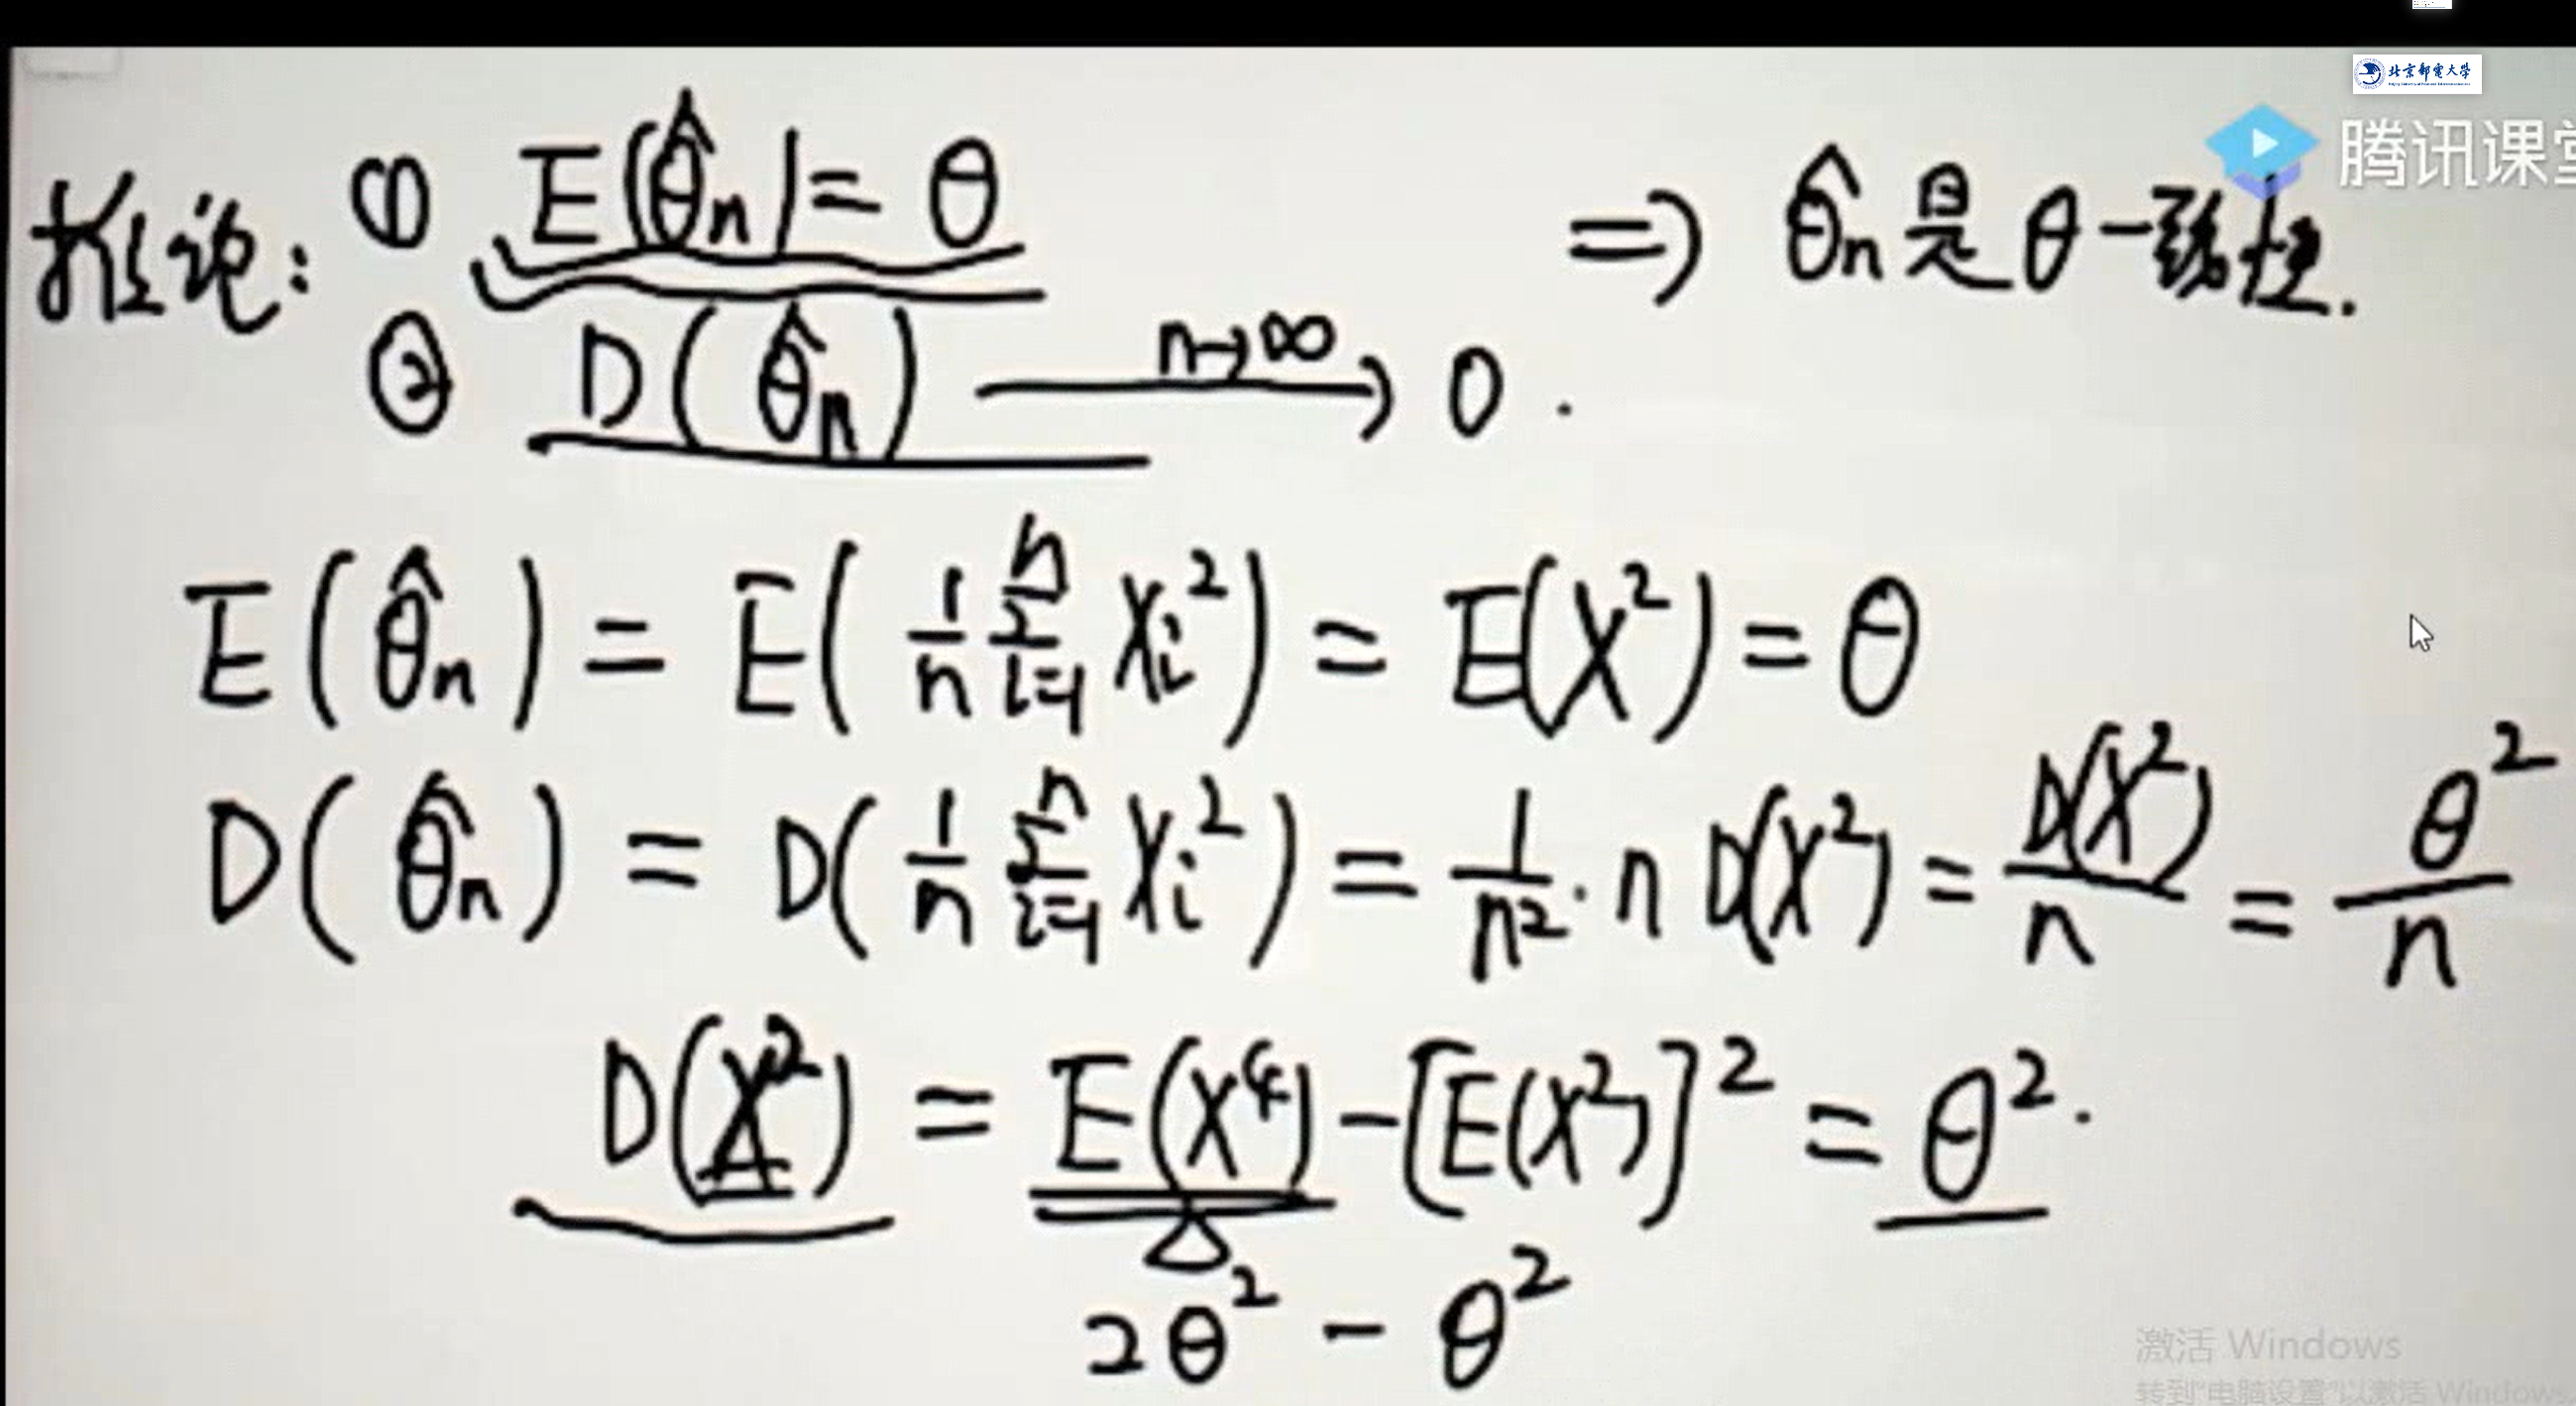 北京邮电大学
腾讯课堂
推论: ① E(θ̂n)=θ ⇒ θ̂n是θ一致性.
② D(θ̂n) n→∞→ 0.
E(θ̂n) = E(1/n Σ_{i=1}^{n} Xi²) = E(X²) = θ
D(θ̂n) = D(1/n Σ_{i=1}^{n} Xi²) = 1/n² · n D(X²) = D(X²)/n = θ²/n
D(X²) = E(X⁴) - [E(X²)]² = θ².
2θ² - θ²
激活 Windows
转到"电脑设置"以激活 Windows